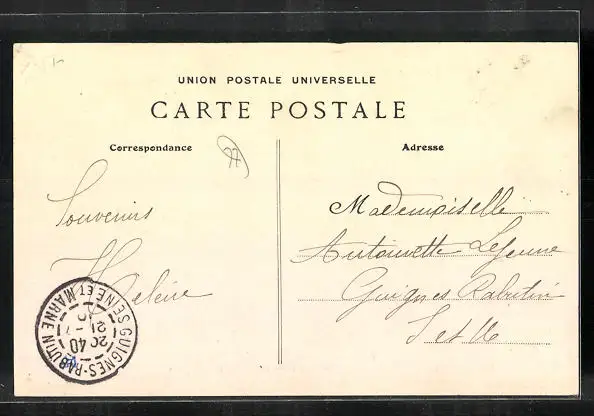 UNION POSTALE UNIVERSELLE
CARTE POSTALE
Correspondance
Adresse
77
Souvenirs
Helène
Mademoiselle
Antoinette Lejeune
Guignes Rabutin
S et M
GUIGNES-RABUTIN SEINE ET MARNE
20 40
21 - 7